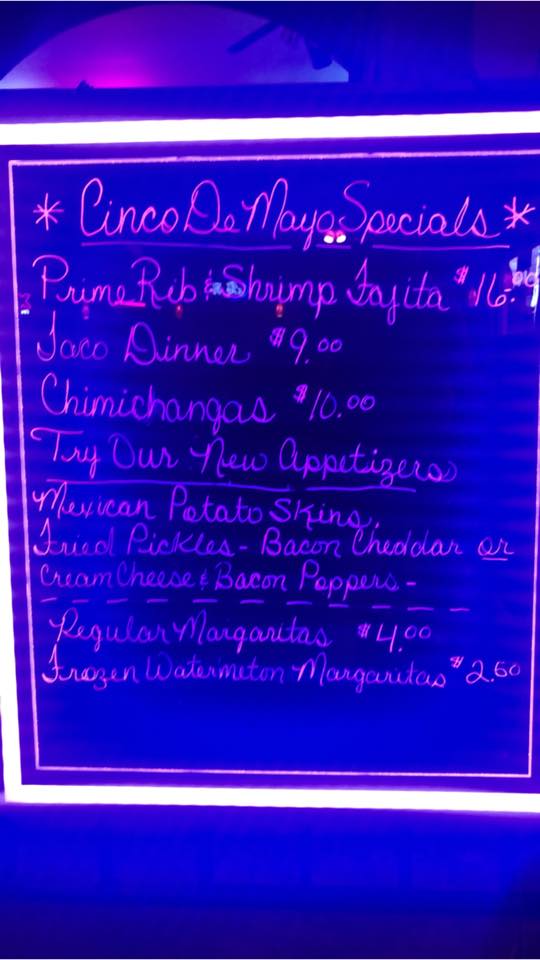 * Cinco De Mayo Specials *
Prime Rib & Shrimp Fajita $16.00
Taco Dinner $9.00
Chimichangas $10.00
Try Our New Appetizers
Mexican Potato Skins,
Fried Pickles - Bacon Cheddar or
Cream Cheese & Bacon Poppers -
Regular Margaritas $4.00
Frozen Watermelon Margaritas $2.50